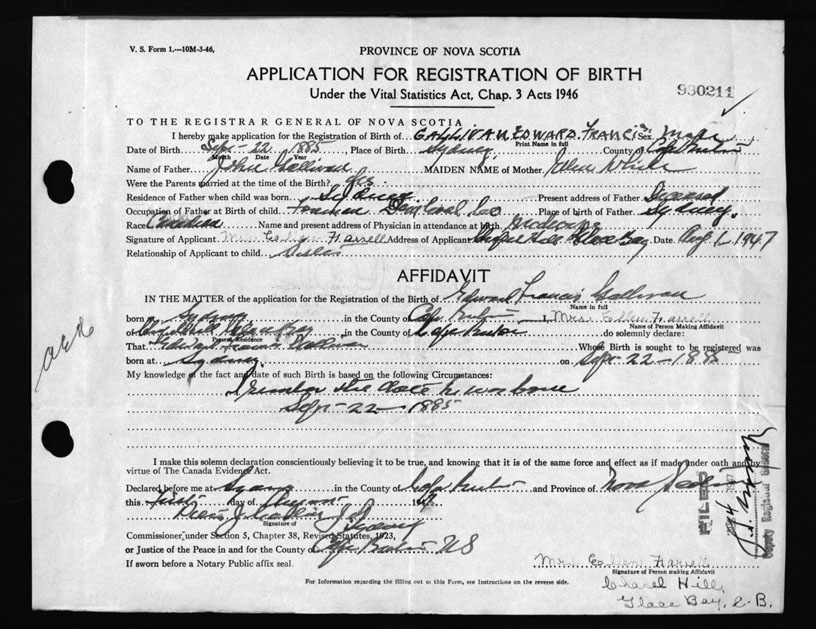 V. S. Form 1.—10M-3-46,
PROVINCE OF NOVA SCOTIA
APPLICATION FOR REGISTRATION OF BIRTH
Under the Vital Statistics Act, Chap. 3 Acts 1946
930211
TO THE REGISTRAR GENERAL OF NOVA SCOTIA
I hereby make application for the Registration of Birth of GALLIVAN EDWARD FRANCIS Sex Male
Print Name in full
Date of Birth Sept 22 1885, Place of Birth Sydney County of Cape Breton
Month Date Year
Name of Father John Gallivan MAIDEN NAME of Mother
Were the Parents married at the time of the Birth? Yes
Residence of Father when child was born Sydney Present address of Father Deceased
Occupation of Father at Birth of child Foreman Dom Coal Co Place of birth of Father Sydney.
Race Canadian Name and present address of Physician in attendance at birth
Signature of Applicant Mrs Farrell Address of Applicant Chapel Hill Glace Bay Date Aug 1 1947
Relationship of Applicant to child Sister
AFFIDAVIT
IN THE MATTER of the application for the Registration of the Birth of Edward Francis Gallivan
Name in full
born at Sydney in the County of Cape Breton I, Mrs Farrell
Name of Person Making Affidavit
of Chapel Hill Glace Bay in the County of Cape Breton do solemnly declare:
Present Residence
That Edward Francis Gallivan Whose Birth is sought to be registered was
born at Sydney. on Sept 22 - 1885
My knowledge of the fact and date of such Birth is based on the following Circumstances:
Remember the date he was born
Sept - 22 - 1885
I make this solemn declaration conscientiously believing it to be true, and knowing that it is of the same force and effect as if made under oath and by
virtue of The Canada Evidence Act.
Declared before me at Sydney in the County of Cape Breton and Province of Nova Scotia
this first day of August
Signature of
Commissioner under Section 5, Chapter 38, Revised Statutes, 1923,
or Justice of the Peace in and for the County of Cape Breton NS
If sworn before a Notary Public affix seal.
Mrs Farrell
Signature of Person making Affidavit
Chapel Hill,
Glace Bay, C. B.
For Information regarding the filling out of this Form, see Instructions on the reverse side.
FILED
Deputy Registrar General